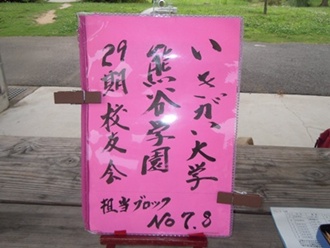 いきがい大学
熊谷学園
29期校友会
担当ブロック
No 7.8